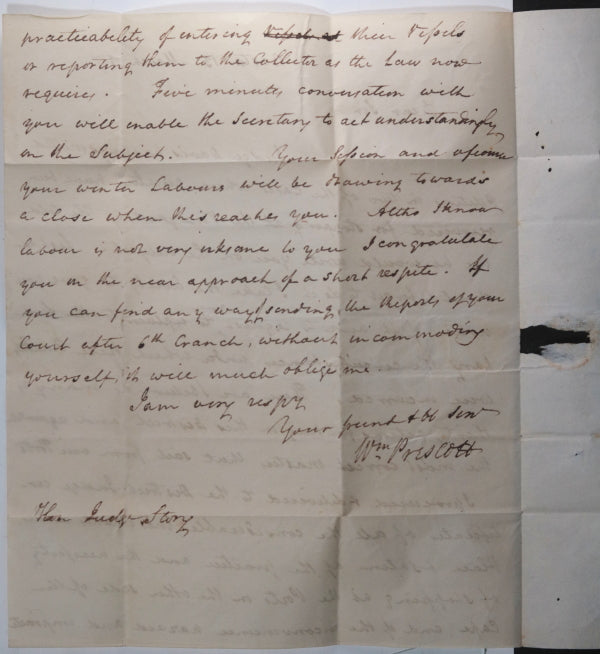 practicability of entering Vessels at their Vessels
or reporting them to the Collector as the Law now
requires. Five minutes conversation with
you will enable the Secretary to act understandingly
on the Subject. Your Session and of course
your winter Labours will be drawing towards
a close when this reaches you. Altho I know
labour is not very irksome to you I congratulate
you on the near approach of a short respite. If
you can find any way of sending the Reports of your
Court after 6th Cranch, without incommoding
yourself, it will much oblige me.
I am very respy
Your friend & ob Serv
Wm Prescott
Hon Judge Story